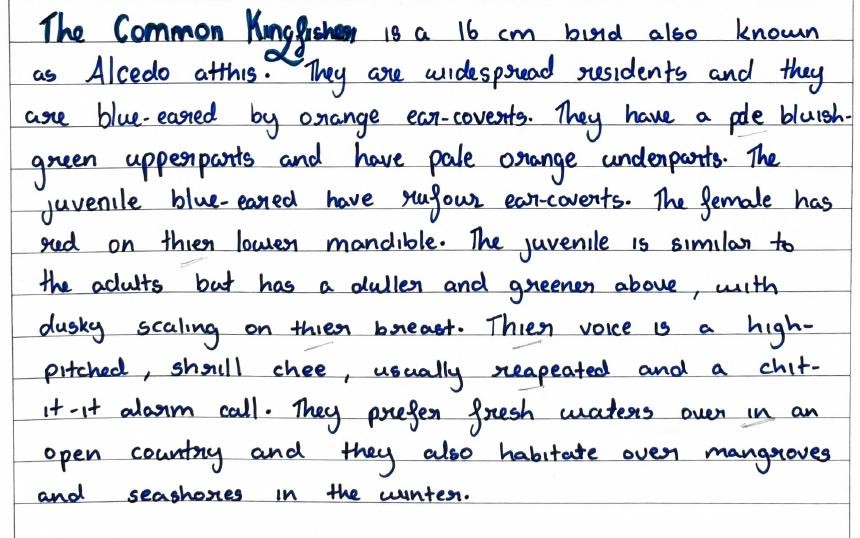 The Common Kingfisher is a 16 cm bird also known
as Alcedo atthis. They are widespread residents and they
are blue-eared by orange ear-coverts. They have a pale bluish-
green upperparts and have pale orange underparts. The
juvenile blue-eared have rufour ear-coverts. The female has
red on thier lower mandible. The juvenile is similar to
the adults but has a duller and greener above, with
dusky scaling on thier breast. Thier voice is a high-
pitched, shrill chee, usually reapeated and a chit-
it-it alarm call. They prefer fresh waters over in an
open country and they also habitate over mangroves
and seashores in the winter.